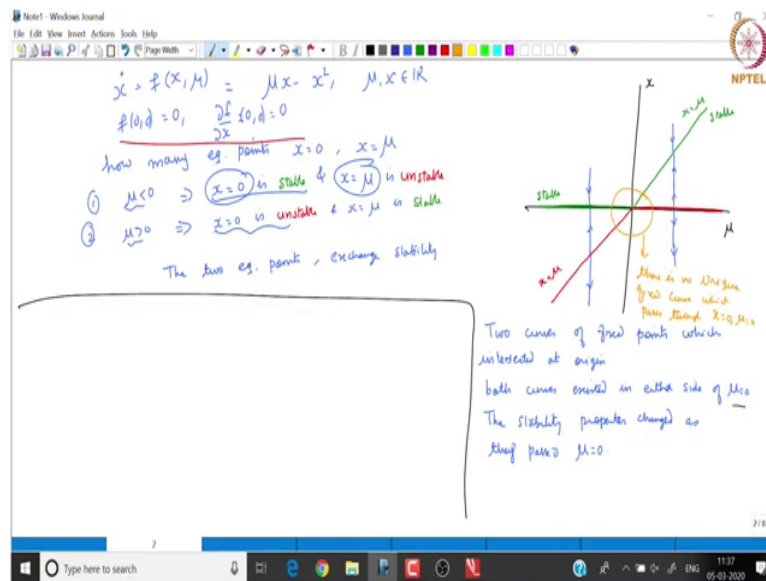 Note1 - Windows Journal
File Edit View Insert Actions Tools Help
Page Width
B I
NPTEL
ẋ = f(x,μ) = μx - x², μ,x ∈ ℝ
f(0,0) = 0, ∂f/∂x (0,0) = 0
how many eq. points x=0, x=μ
① μ<0 ⇒ x=0 is stable & x=μ is unstable
② μ>0 ⇒ x=0 is unstable & x=μ is stable
The two eq. points, exchange stability
x
x=μ
stable
stable
μ
x=μ
there is no unique
fixed curve which
pass through x=0, μ=0
Two curves of fixed points which
intersected at origin
both curves existed in either side of μ=0
The stability properties changed as
they passed μ=0.
2
2/8
Type here to search
ENG
11:37
05-03-2020